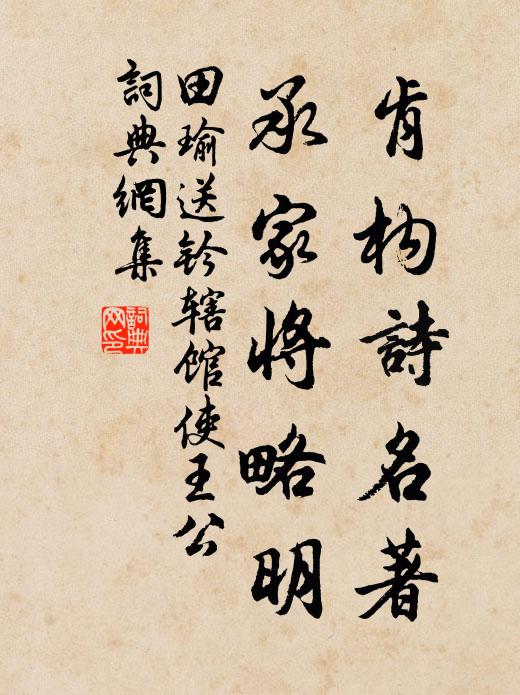 肯构詩名著
承家將略明
田瑜送鈐辖馆使王公
詞典網集
詞典网印